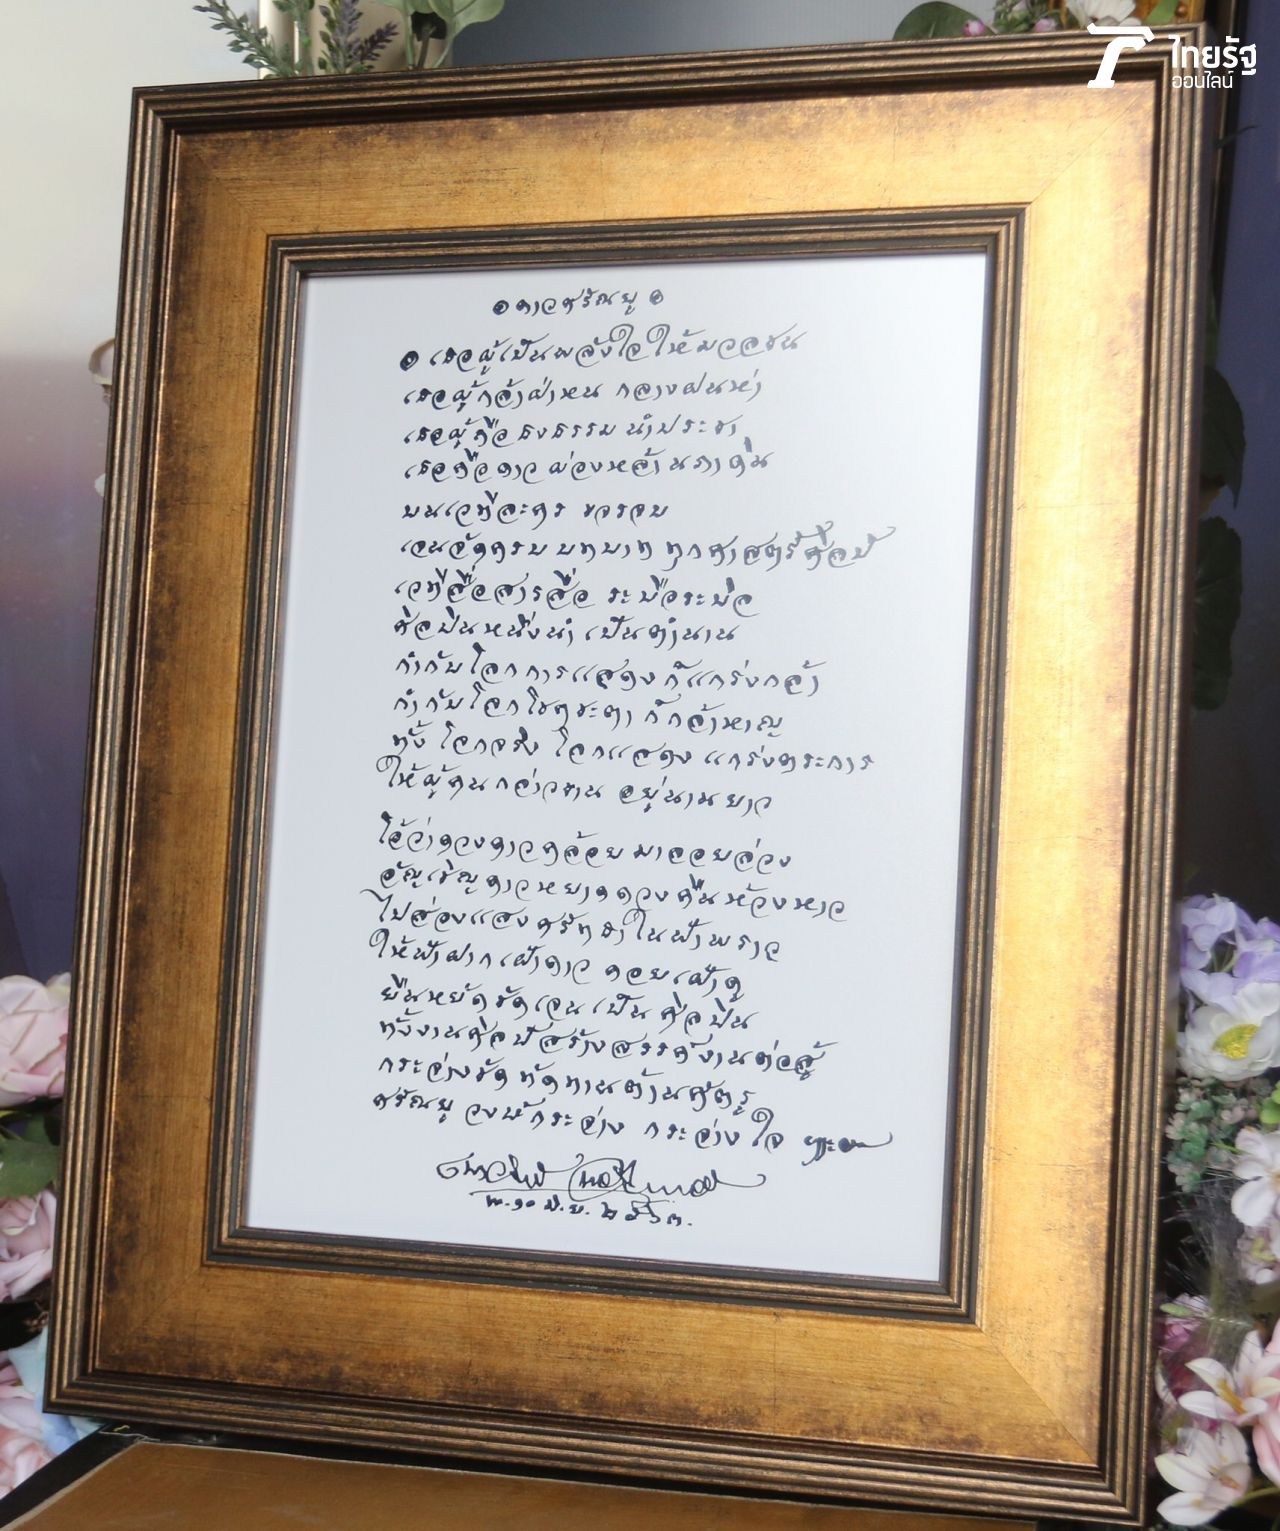 ไทยรัฐ
ออนไลน์
๑ ดาวศรัณยู ๑
๑ เธอผู้เป็นพลังใจให้มวลชน
เธอผู้กล้าฝ่าหน กลางฝนห่า
เธอผู้ถือธงธรรม นำประชา
เธอคือดาว ผ่องหล้า นภาคืน
บนเวทีละคร ขจรจบ
เจนจัดครบ บทบาท ทุกศาสตร์ศิลป์
เวทีสื่อสารสื่อ ระบือระบิล
ศิลปินหนึ่งนำ เป็นตำนาน
กำกับโลกการแสดง ก็แกร่งกล้า
กำกับโลกโชคชะตา ก็กล้าหาญ
ทั้งโลกจริง โลกแสดง แกร่งตระการ
ให้ผู้คนกล่าวขาน อยู่นานยาว
โอ้ว่าดวงดาวคล้อย มาลอยล่วง
อัญเชิญดาวหยาดดวง คืนห้วงหาว
ไปส่องแสงศรัทธาในฟ้าพราว
ให้ฟ้าฝากเฝ้าดาว คอยเฝ้าดู
ยืนหยัดชัดเจนเป็น ศิลปิน
ทั้งงานศิลป์สร้างสรรค์งานต่อสู้
กระจ่างชัด ทัดทานต้านศัตรู
ศรัณยู วงษ์กระจ่าง กระจ่างใจ
เนาวรัตน์ พงษ์ไพบูลย์
พ. ๑๐ มิ.ย. ๒๕๖๓.